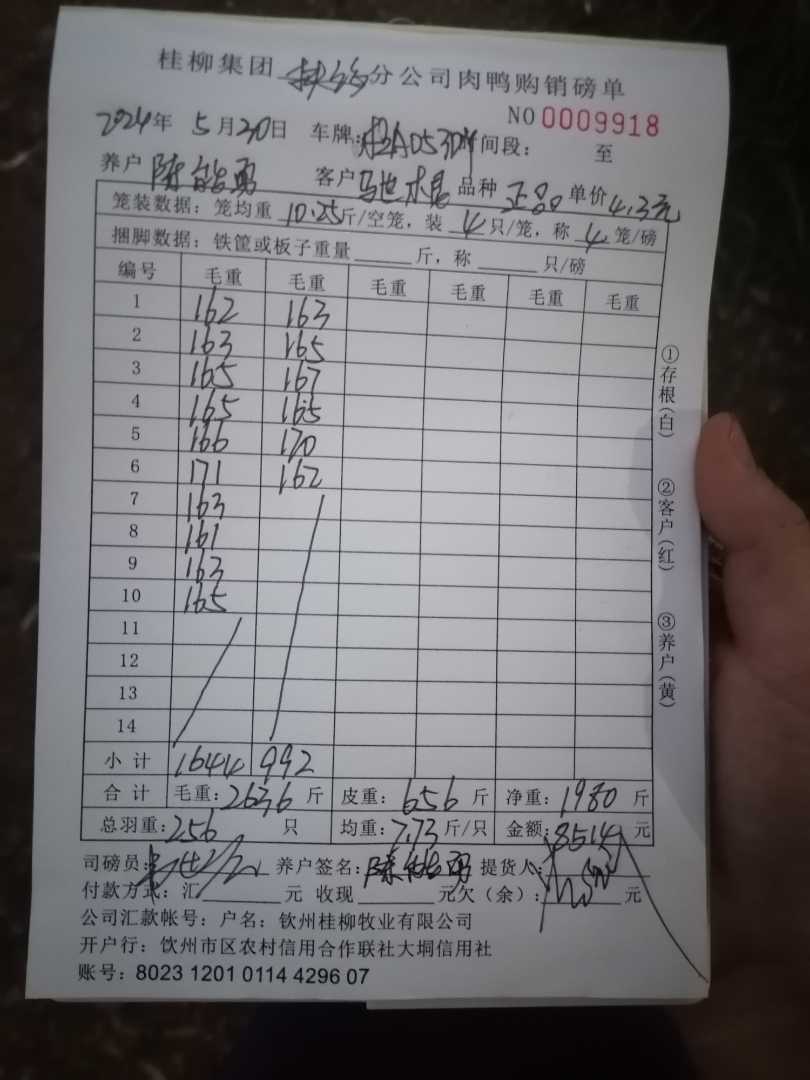 桂柳集团 分公司肉鸭购销磅单
NO 0009918
2024年 5月20日 车牌: 间段: 至
养户 陈能勇 客户 马世木 品种 正品 单价 4.3元
笼装数据:笼均重 10.25斤/空笼,装 4只/笼,称 4笼/磅
捆脚数据:铁筐或板子重量______斤,称______只/磅
编号 毛重 毛重 毛重 毛重 毛重 毛重
1 162 163
2 163 165
3 165 167
4 165 165
5 166 170
6 171 162
7 163
8 161
9 163
10 165
11
12
13
14
小计 1644 992
合计 毛重:2636斤 皮重:656斤 净重:1980斤
总羽重:256 只 均重:7.73斤/只 金额:8514元
司磅员: 养户签名:陈能勇 提货人:
付款方式:汇______元 收现______元欠(余):______元
公司汇款帐号:户名:钦州桂柳牧业有限公司
开户行:饮州市区农村信用合作联社大垌信用社
账号:8023 1201 0114 4296 07
①存根(白)
②客户(红)
③养户(黄)